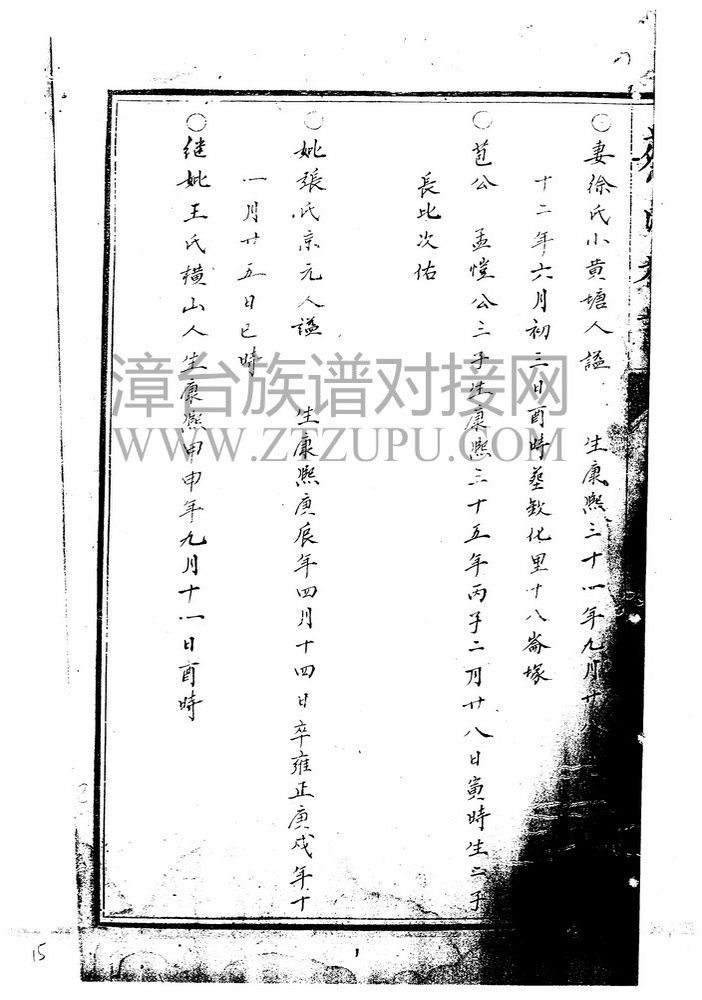 ○妻徐氏小黄塘人謚 生康熙三十一年九月廿八
十二年六月初三日酉時葬歓化里十八崙塚
○苞公 孟愷公三子生康熙三十五年丙子二月廿八日寅時生二子
長比次佑
○妣張氏京元人謚 生康熙庚辰年四月十四日卒雍正庚戌年十
一月廿五日巳時
○继妣王氏横山人生康熙甲申年九月十一日酉時
漳台族谱对接网
WWW.ZTZUPU.COM
15
1